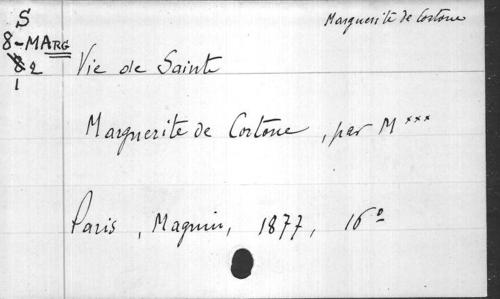 Marguerite de Cortone
S
8-MARG
82
1
Vie de Sainte
Marguerite de Cortone, par M***
Paris, Magnin, 1877, 16º